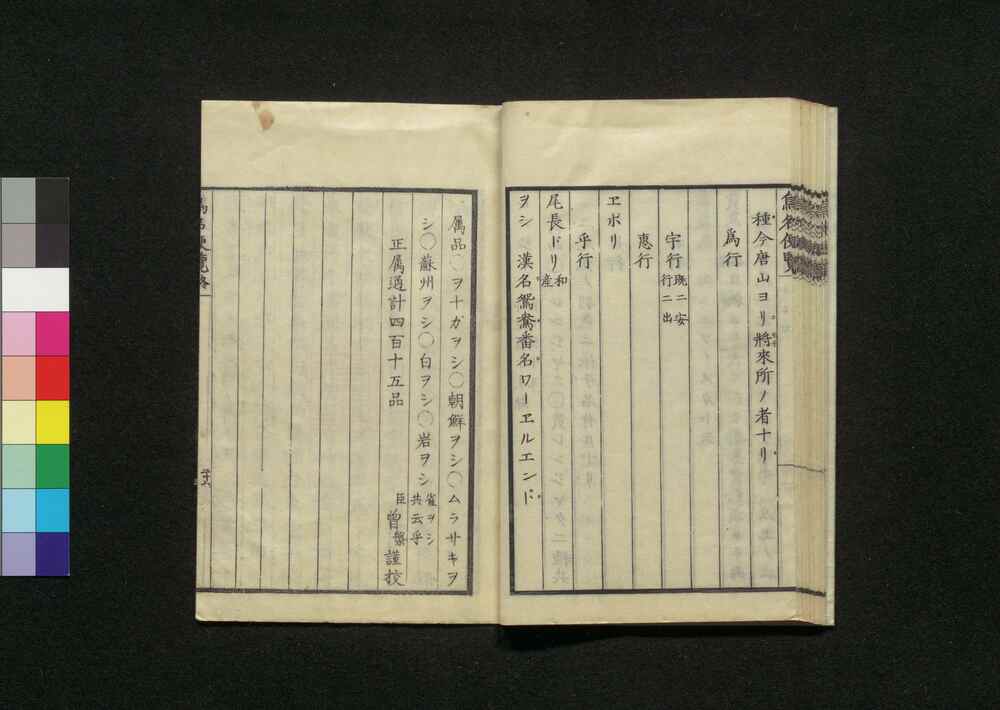 鳥名便覧
種今唐山ヨリ將來所ノ者十リ
爲行
宇行 既ニ安行ニ出
恵行
ヱボリ
乎行
尾長ドリ 和産
ヲシ 漢名鴛鴦番名ワーヱルエンド
属品〇ヲ十ガヲシ〇朝鮮ヲシ〇ムラサキヲ
シ〇蘇州ヲシ〇白ヲシ〇岩ヲシ 雀ヲシ共云乎
正属通計四百十五品
臣 曾槃 謹校